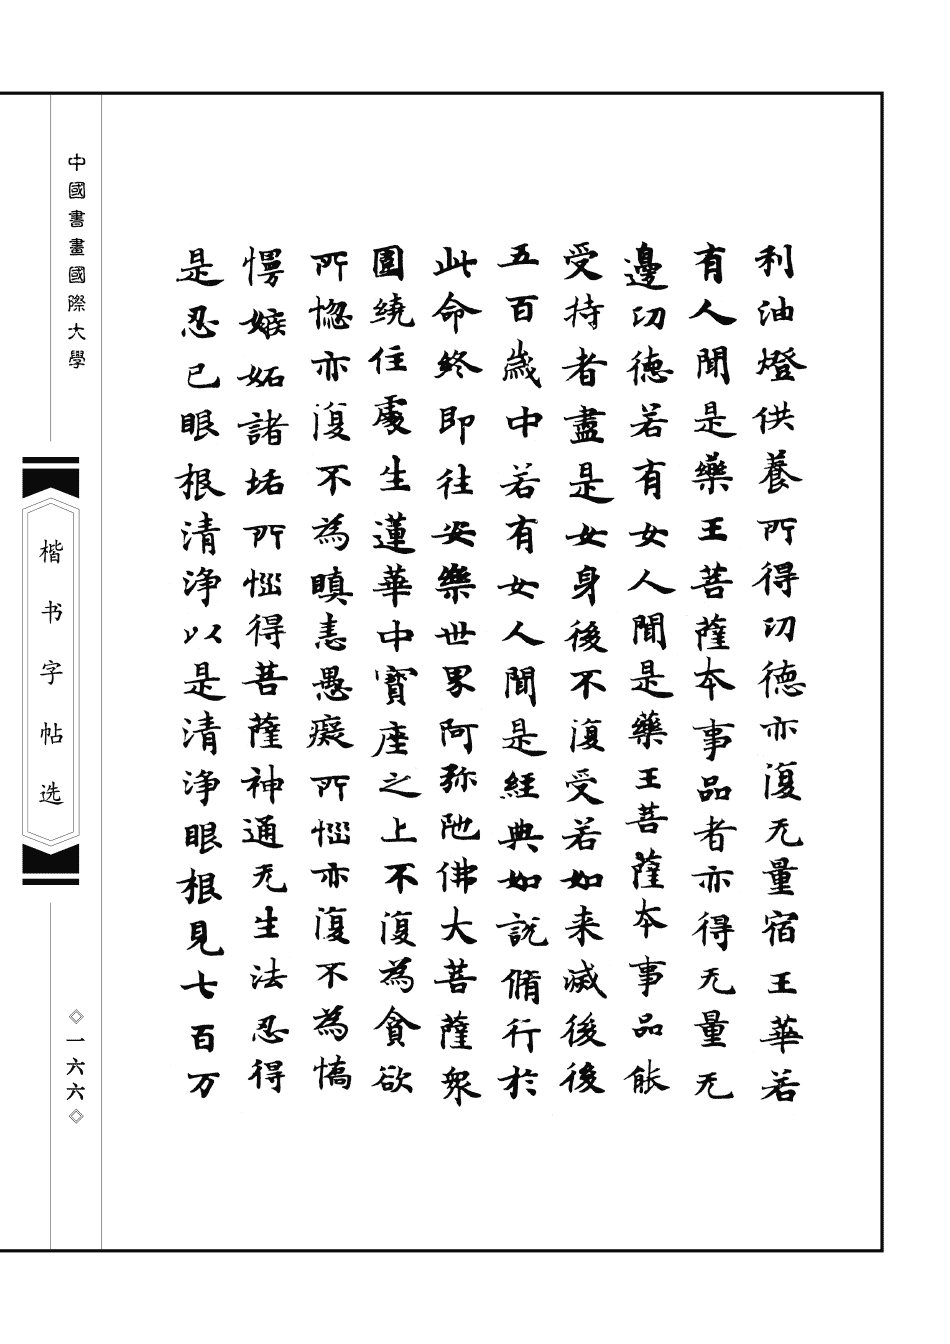 利油燈供養所得功德亦復无量宿王華若
有人聞是藥王菩薩本事品者亦得无量无
邊功德若有女人聞是藥王菩薩本事品能
受持者盡是女身後不復受若如来滅後後
五百歲中若有女人聞是經典如說脩行於
此命終即往安樂世界阿弥陁佛大菩薩衆
圍繞住處生蓮華中寶座之上不復為貪欲
所惱亦復不為瞋恚愚癡所惱亦復不為憍
慢嫉妬諸垢所惱得菩薩神通无生法忍得
是忍已眼根清淨以是清淨眼根見七百万
中國書畫國際大學
楷书字帖选
◇一六六◇